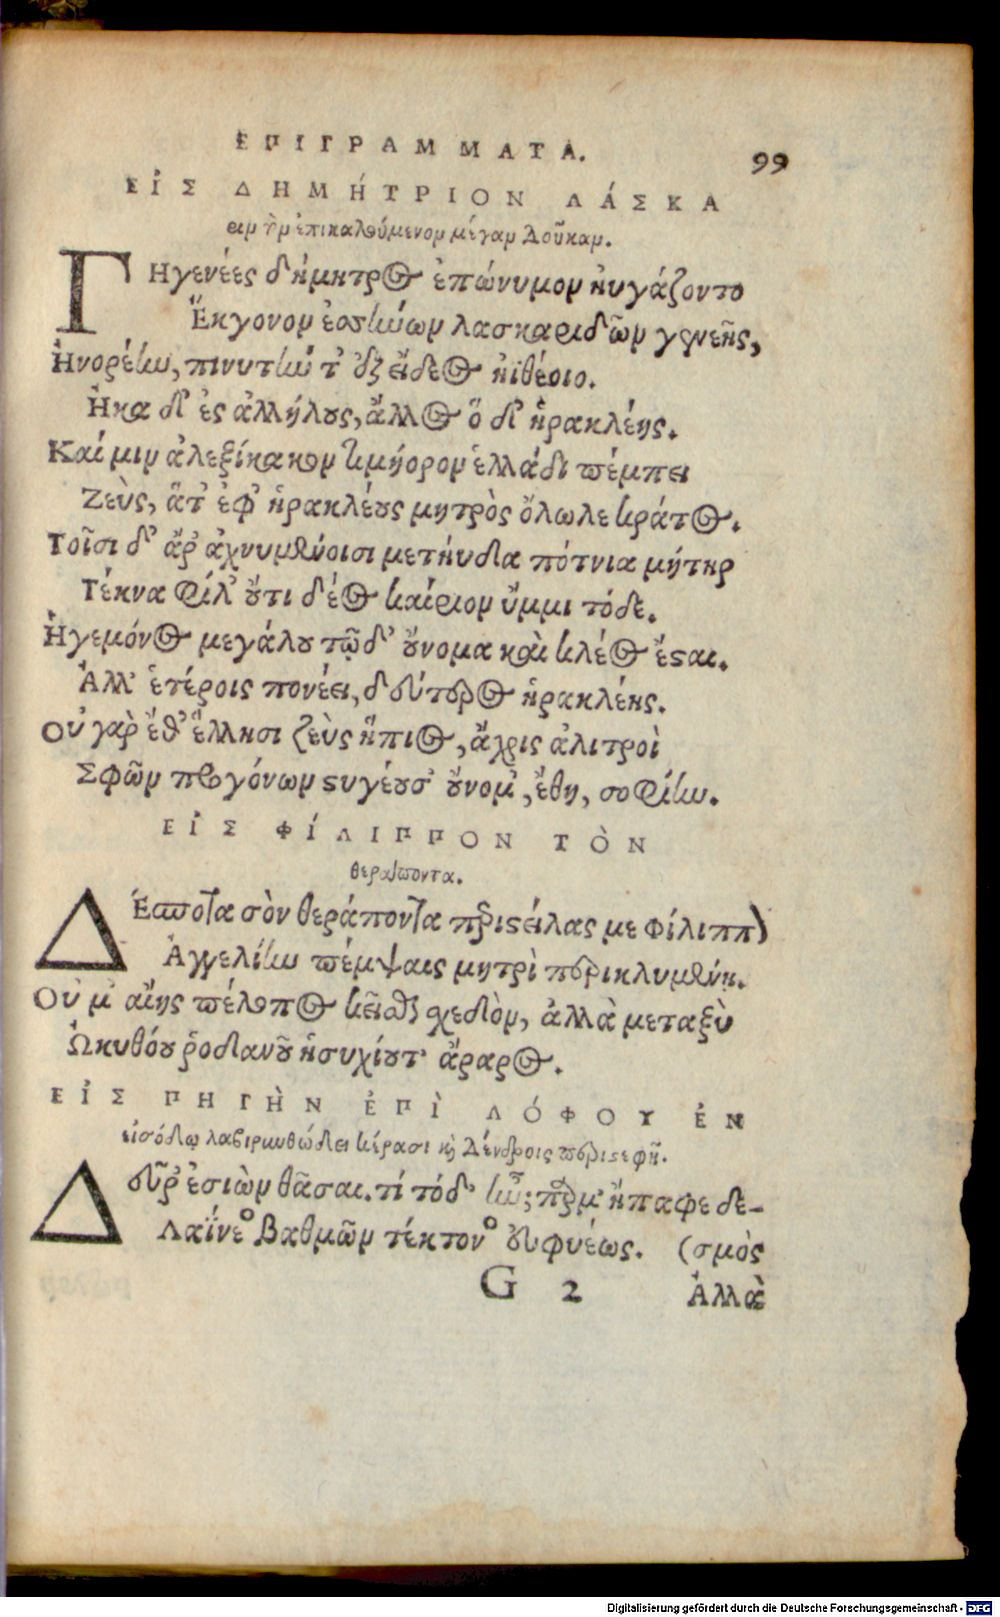 ΕΠΙΓΡΑΜΜΑΤΑ. 99
ΕἸΣ ΔΗΜΉΤΡΙΟΝ ΛΆΣΚΑ
ειν τὸν ἐπικαλούμενον μέγαν Δοῦκαν.
ΓΗγενέες δήμητρος ἐπώνυμον ηὐγάζοντο
Ἔκγονον ἐοστίωων λασκαριδῶν γενεῆς,
Ἠνορέίω, πινυτίώ τ' εἴδεος ἠϊθέοιο.
Ἦκα δ' ἐς ἀλλήλους, ἄλλος ὅ δ' ἡρακλέης.
Καί μιν ἀλεξίκακον κἠμήορον ἑλλάδι πέμπει
Ζεὺς, ἅτ' ἐφ' ἡρακλέους μητρὸς ὄλωλε κράτος.
Τοῖσι δ' ἄρ' ἀχνυμένοισι μετηύδα πότνια μήτηρ
Τέκνα φίλ' οὔτι δέος καίριον ὔμμι τόδε.
Ἡγεμόνος μεγάλου τῷδ' οὔνομα καὶ κλέος ἔσαι.
Ἀλλ' ἑτέροις πονέει, δεύτερος ἡρακλέης.
Οὐ γὰρ ἔθ' ἕλλησι ζεὺς ἤπιος, ἄχρις ἀλιτροὶ
Σφῶν προγόνων στυγέουσ' οὔνομ', ἔθη, σοφίίω.
ΕἸΣ ΦΊΛΙΠΠΟΝ ΤῸΝ
θεράποντα.
ΔΈσποτα σὸν θεράποντα περιστείλας με Φίλιππον
Ἀγγελίίω πέμψαις μητρὶ περικλυμένῃ.
Οὔ μ' αἴης πέλοπος κεῖσθαι σχεδὸν, ἀλλὰ μεταξὺ
Ὠκυθόου ῥοδανοῦ ἡσυχίου τ' ἄραρος.
ΕἸΣ ΠΗΓῊΝ ἘΠῚ ΛΌΦΟΥ ἘΝ
εἰσόδῳ λαβιρινθώδει κέρασι καὶ Δένδροις περιστεφῆ.
Δεῦρ' ἐσιὼν θᾶσαι. τί τόδ' ; παρά μ' ἤπαφε δε-
Λαΐνεος βαθμῶν τέκτονος εὐφυέως. (σμὸς
G 2 Ἀλλὰ
Digitalisierung gefördert durch die Deutsche Forschungsgemeinschaft - DFG